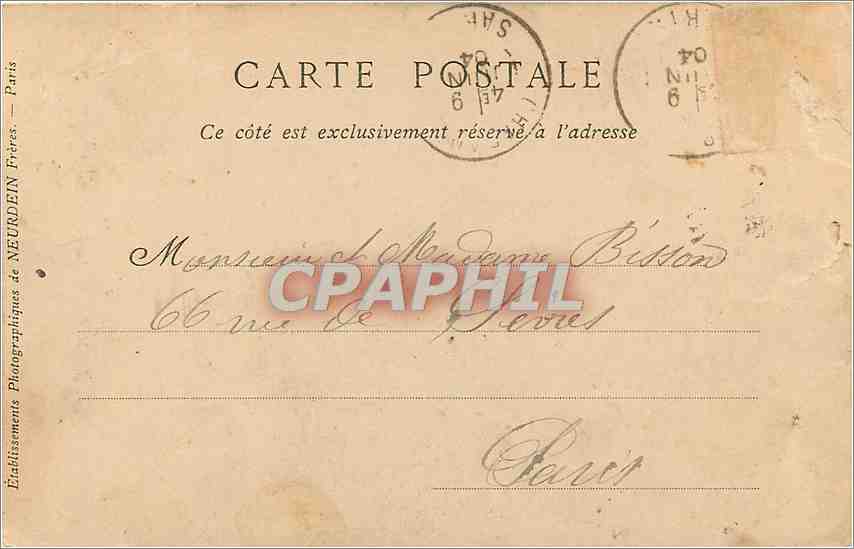 CARTE POSTALE
Ce côté est exclusivement réservé à l'adresse
Monsieur et Madame Bisson
66 rue de Sèvres
Paris
CPAPHIL
Établissements Photographiques de NEURDEIN Frères. — Paris
SAR
4E
9
JUIN
04
9
JUIN
04